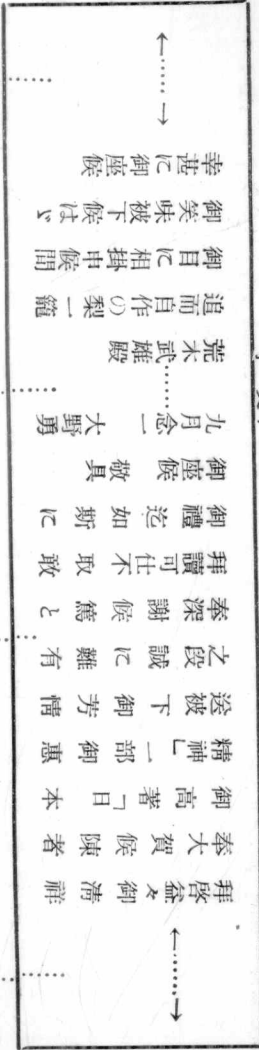 拜啓益々御清祥
奉大賀候陳者
御高著「日本
精神」一部御惠
送被下御芳情
之段誠に難有
奉深謝候篤と
拜讀可仕不取敢
御禮迄如斯に
御座候 敬具
九月念一 大野勇
荒木武雄殿
追而自作の梨一籠
御目に相掛申候間
御笑味被下候はゞ
幸甚に御座候